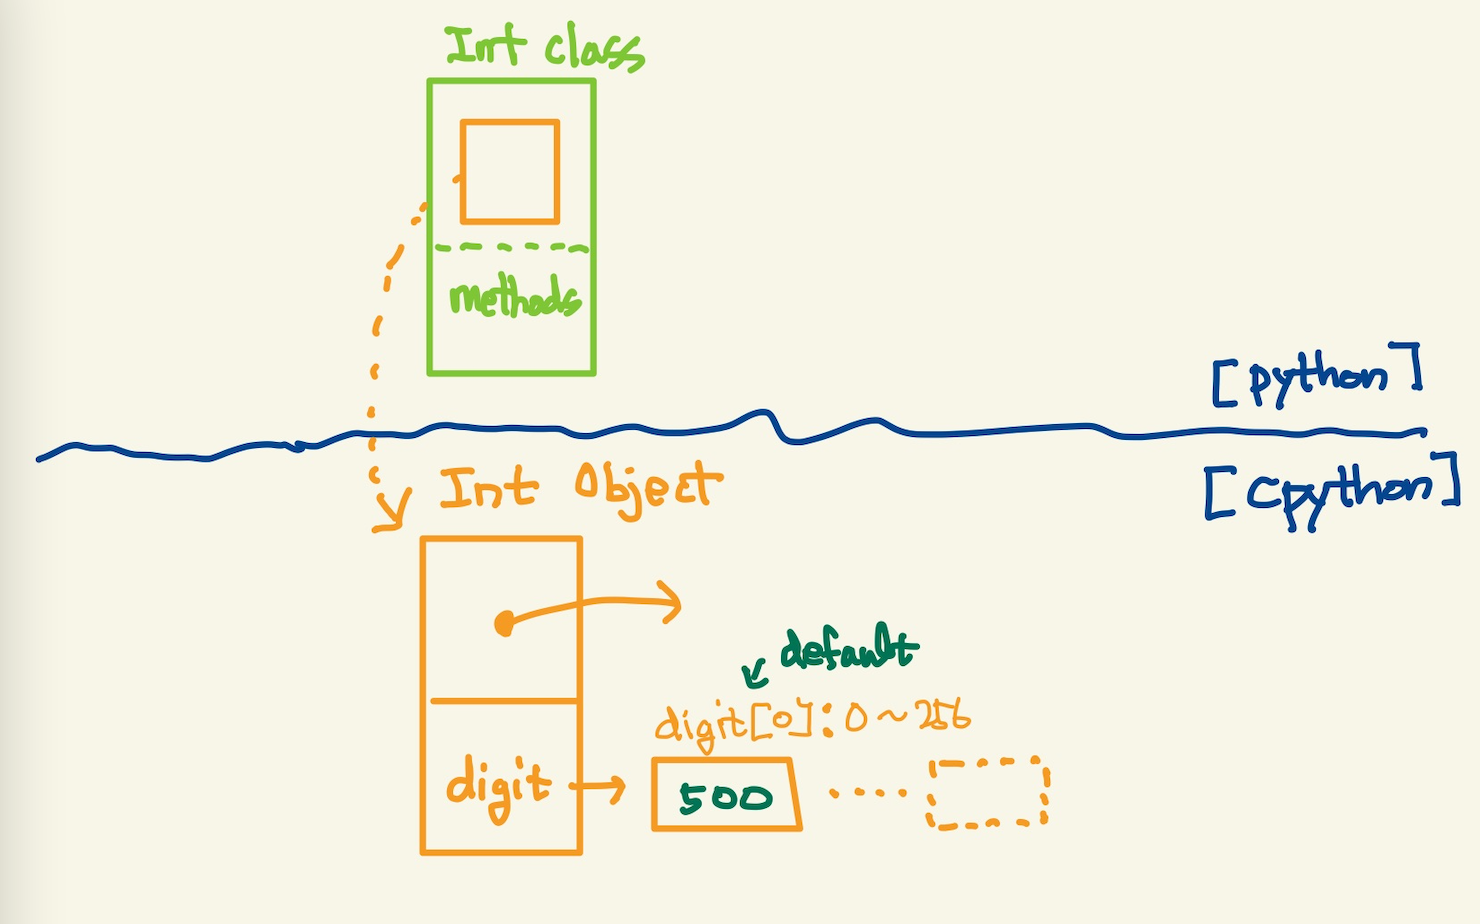 Int class
methods
[python]
[Cpython]
Int Object
default
digit[0]: 0 ~ 256
digit
500